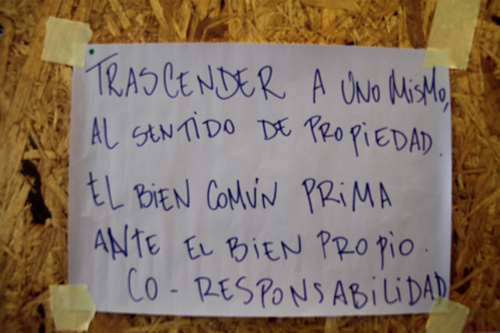 TRASCENDER A UNO MISMO,
AL SENTIDO DE PROPIEDAD.
EL BIEN COMÚN PRIMA
ANTE EL BIEN PROPIO.
CO-RESPONSABILIDAD